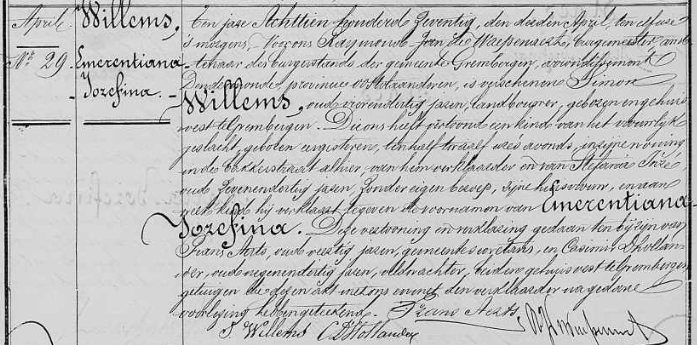 April
N° 29
Willems,
Emerentiana
Jozefina.
Ten jare Achttien honderd Zeventig, den derden April, ten elf ure
's morgens, Voor ons Raymond Jean De Waepenaert, burgemeester amb-
tenaar des burgerstands der gemeente Grembergen, arrondissement
Dendermonde, provincie Oostvlaanderen, is verschenen Simon
Willems, oud jaren, landbouwer, geboren en gehuis
vest te Grembergen. Die ons heeft getoond een kind van het vrouwlyk
geslacht, geboren eergisteren, ten half twaelf ures avonds, in zyne wooning
in de bakkerstraat alhier, van hem verklaarder en van Stefania
oud zevenendertig jaren, zonder eigen beroep, zyne huisvrouw, en aan
welk kind hy verklaart te geven de voornamen van Emerentiana
Jozefina. Deze vertooning en verklaring gedaan ten byzyn van
Frans Aerts, oud veertig jaren, gemeentesecretaris, en Casimir D'hollan
der, oud negenendertig jaren, veldwachter, beiden gehuisvest te Grembergen
getuigen die dezen akt met ons en met den verklaarder na gedane
voorlezing hebben geteekend. Frans Aerts
S Willems C D'Hollander